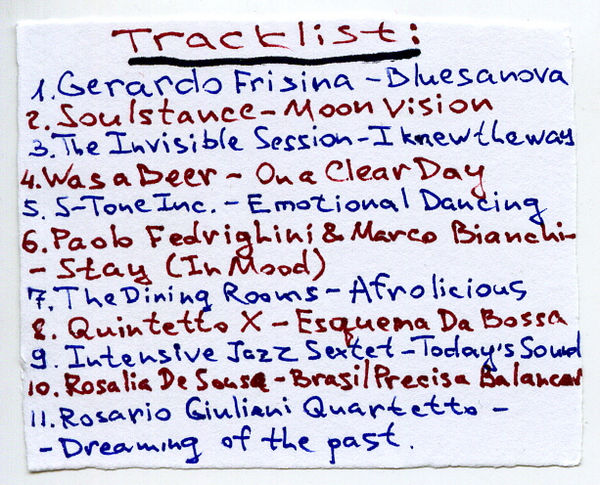 Tracklist:
1. Gerardo Frisina - Bluesanova
2. Soulstance - Moon Vision
3. The Invisible Session - I knew the way
4. Was a Beer - On a Clear Day
5. S-Tone Inc. - Emotional Dancing
6. Paolo Fedrighini & Marco Bianchi-
- Stay (In Mood)
7. The Dining Rooms - Afrolicious
8. Quintetto X - Esquema Da Bossa
9. Intensive Jazz Sextet - Today's Sound
10. Rosalia De Sousa - Brasil Precisa Balancar
11. Rosario Giuliani Quartetto -
- Dreaming of the past.